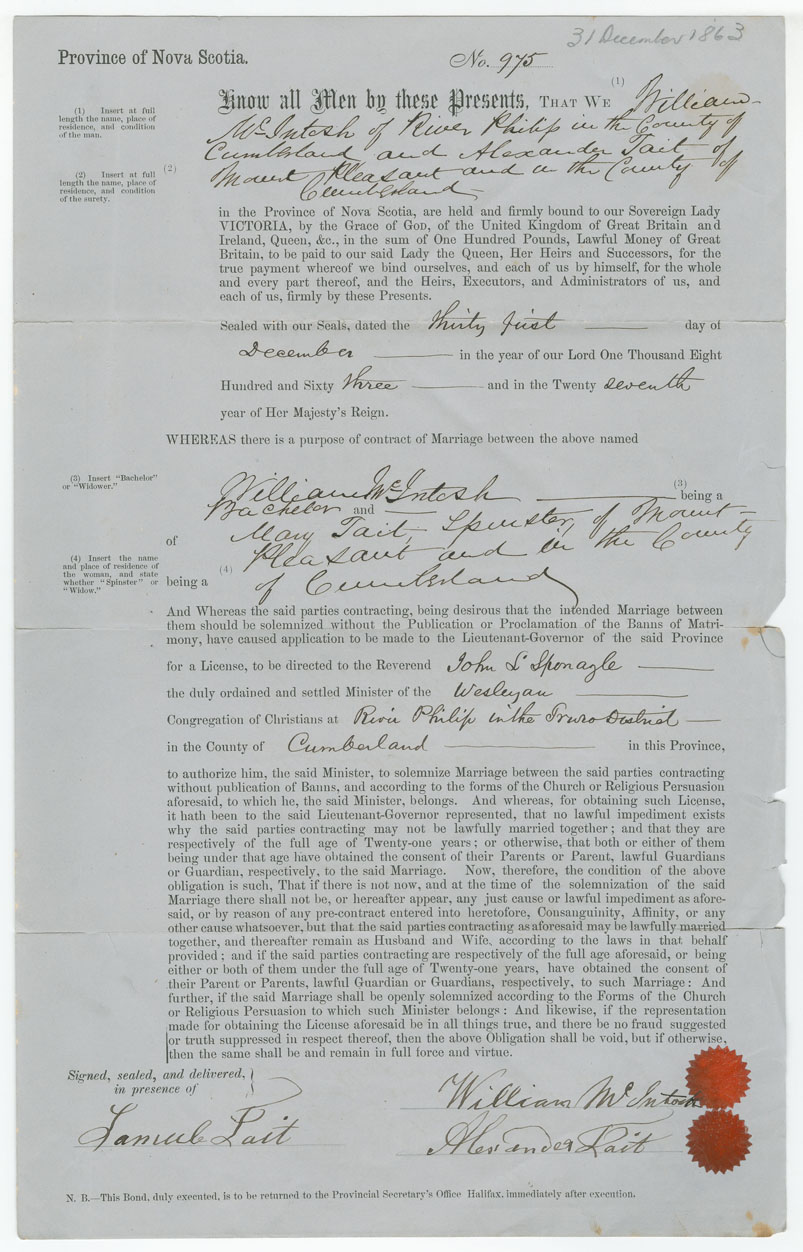 31 December 1863
Province of Nova Scotia.
No. 975
(1)
Know all Men by these Presents, THAT WE William
McIntosh of River Philip in the County of
Cumberland and Alexander Tait of
(2)
Mount Pleasant and in the County of
Cumberland
(1) Insert at full
length the name, place of
residence, and condition
of the man.
(2) Insert at full
length the name, place of
residence, and condition
of the surety.
in the Province of Nova Scotia, are held and firmly bound to our Sovereign Lady
VICTORIA, by the Grace of GOD, of the United Kingdom of Great Britain and
Ireland, Queen, &c., in the sum of One Hundred Pounds, Lawful Money of Great
Britain, to be paid to our said Lady the Queen, Her Heirs and Successors, for the
true payment whereof we bind ourselves, and each of us by himself, for the whole
and every part thereof, and the Heirs, Executors, and Administrators of us, and
each of us, firmly by these Presents.
Sealed with our Seals, dated the thirty first day of
December in the year of our Lord One Thousand Eight
Hundred and Sixty three and in the Twenty seventh
year of Her Majesty's Reign.
WHEREAS there is a purpose of contract of Marriage between the above named
(3) Insert "Bachelor"
or "Widower."
William McIntosh (3) being a
Bachelor and
of Mary Tait, Spinster, of Mount
(4) Insert the name
and place of residence of
the woman, and state
whether "Spinster" or
"Widow."
(4)
Pleasant and in the County
being a of Cumberland
And Whereas the said parties contracting, being desirous that the intended Marriage between
them should be solemnized without the Publication or Proclamation of the Banns of Matri-
mony, have caused application to be made to the Lieutenant-Governor of the said Province
for a License, to be directed to the Reverend John L Sponagle
the duly ordained and settled Minister of the Wesleyan
Congregation of Christians at River Philip in the Truro District
in the County of Cumberland in this Province,
to authorize him, the said Minister, to solemnize Marriage between the said parties contracting
without publication of Banns, and according to the forms of the Church or Religious Persuasion
aforesaid, to which he, the said Minister, belongs. And whereas, for obtaining such License,
it hath been to the said Lieutenant-Governor represented, that no lawful impediment exists
why the said parties contracting may not be lawfully married together; and that they are
respectively of the full age of Twenty-one years; or otherwise, that both or either of them
being under that age have obtained the consent of their Parents or Parent, lawful Guardians
or Guardian, respectively, to the said Marriage. Now, therefore, the condition of the above
obligation is such, That if there is not now, and at the time of the solemnization of the said
Marriage there shall not be, or hereafter appear, any just cause or lawful impediment as afore-
said, or by reason of any pre-contract entered into heretofore, Consanguinity, Affinity, or any
other cause whatsoever, but that the said parties contracting as aforesaid may be lawfully married
together, and thereafter remain as Husband and Wife, according to the laws in that behalf
provided; and if the said parties contracting are respectively of the full age aforesaid, or being
either or both of them under the full age of Twenty-one years, have obtained the consent of
their Parent or Parents, lawful Guardian or Guardians, respectively, to such Marriage: And
further, if the said Marriage shall be openly solemnized according to the Forms of the Church
or Religious Persuasion to which such Minister belongs: And likewise, if the representation
made for obtaining the License aforesaid be in all things true, and there be no fraud suggested
or truth suppressed in respect thereof, then the above Obligation shall be void, but if otherwise,
then the same shall be and remain in full force and virtue.
Signed, sealed, and delivered,
in presence of
William McIntosh
Samuel Tait
Alexander Tait
N. B.—This Bond, duly executed, is to be returned to the Provincial Secretary's Office Halifax, immediately after execution.